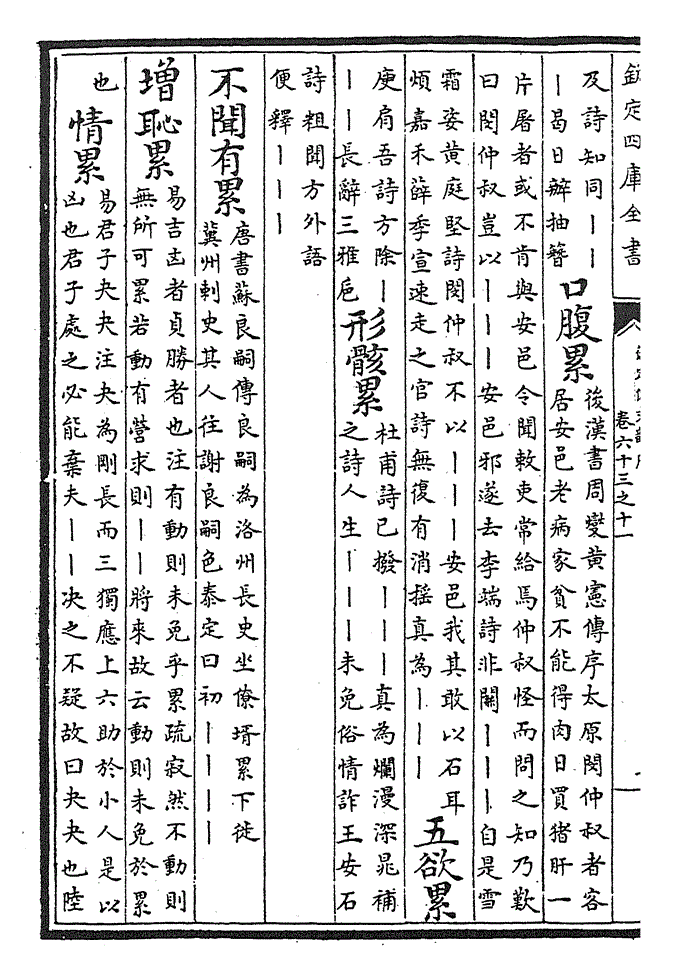 欽定四庫全書
卷六十三之十一
及詩知同丨丨
丨曷日辦抽簪
口腹累
後漢書周燮黃憲傳序太原閔仲叔者客
居安邑老病家貧不能得肉日買猪肝一
片屠者或不肯與安邑令聞敕吏常給焉仲叔怪而問之知乃歎
曰閔仲叔豈以丨丨丨安邑邪遂去李端詩非關丨丨丨自是雪
霜姿黃庭堅詩閔仲叔不以丨丨丨安邑我其敢以石耳
煩嘉禾薛季宣速走之官詩無復有消揺真為丨丨丨
五欲累
庾肩吾詩方除丨
丨丨長辭三雅巵
形骸累
杜甫詩已撥丨丨丨真為爛漫深晁補
之詩人生丨丨丨未免俗情詐王安石
詩粗聞方外語
便釋丨丨丨
不聞有累
唐書蘇良嗣傳良嗣為洛州長史坐僚壻累下徙
冀州刺史其人往謝良嗣色泰定曰初丨丨丨丨
增恥累
易吉凶者貞勝者也注有動則未免乎累疏寂然不動則
無所可累若動有營求則丨丨將來故云動則未免於累
也
情累
易君子夬夬注夬為剛長而三獨應上六助於小人是以
凶也君子處之必能棄夫丨丨决之不疑故曰夬夬也陸